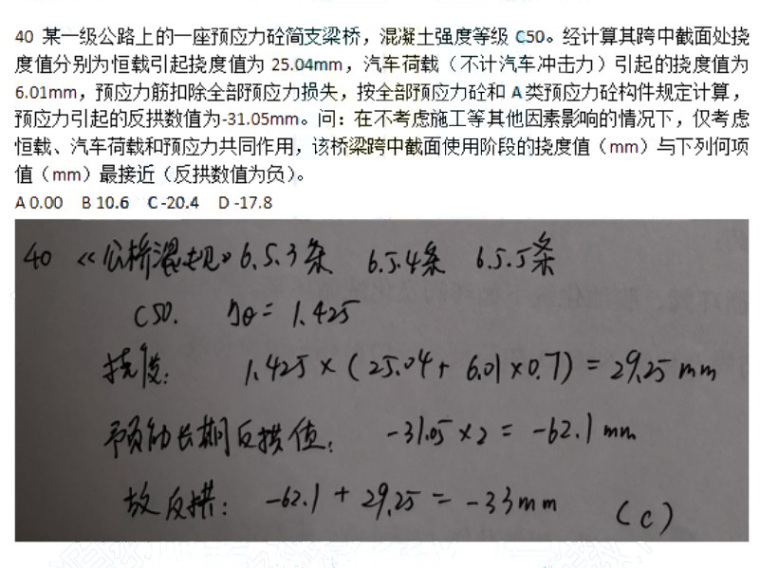 40 某一级公路上的一座预应力砼简支梁桥，混凝土强度等级 C50。经计算其跨中截面处挠
度值分别为恒载引起挠度值为 25.04mm，汽车荷载（不计汽车冲击力）引起的挠度值为
6.01mm，预应力筋扣除全部预应力损失，按全部预应力砼和 A 类预应力砼构件规定计算，
预应力引起的反拱数值为-31.05mm。问：在不考虑施工等其他因素影响的情况下，仅考虑
恒载、汽车荷载和预应力共同作用，该桥梁跨中截面使用阶段的挠度值（mm）与下列何项
值（mm）最接近（反拱数值为负）。
A 0.00 B 10.6 C -20.4 D -17.8
40 《公桥混规》6.5.3条 6.5.4条 6.5.5条
C50. ηθ = 1.425
挠度: 1.425 × (25.04 + 6.01 × 0.7) = 29.25 mm
预加力长期反拱值: -31.05 × 2 = -62.1 mm
故反拱: -62.1 + 29.25 = -33 mm (C)